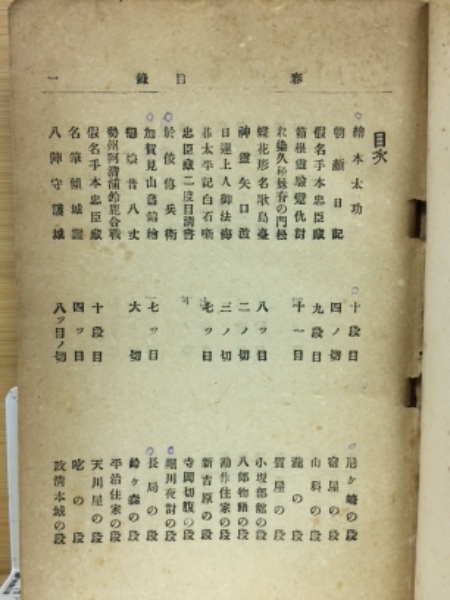 春 目錄 一
目次
繪本太功 十段目 尼ヶ崎の段
朝顏日記 四ノ切 宿屋の段
假名手本忠臣藏 九段目 山科の段
箱根靈驗躄仇討 十一目 瀧の段
お染久松妹脊の門松 質屋の段
蝶花形名歌島臺 八ッ目 小坂部館の段
神靈矢口渡 二ノ切 八郎物語の段
日蓮上人御法海 三ノ切 勘作住家の段
碁太平記白石噺 七ッ目 新吉原の段
忠臣藏二度目淸書 寺岡切腹の段
於俊傳兵衞 堀川夜討の段
加賀見山舊錦繪 七ッ目 長局の段
戀娘昔八丈 大切 鈴ヶ森の段
勢州阿漕浦鈴鹿合戰 平治住家の段
假名手本忠臣藏 十段目 天川屋の段
名筆傾城鑑 四ッ目 吃の段
八陣守護城 八ッ目ノ切 政淸本城の段